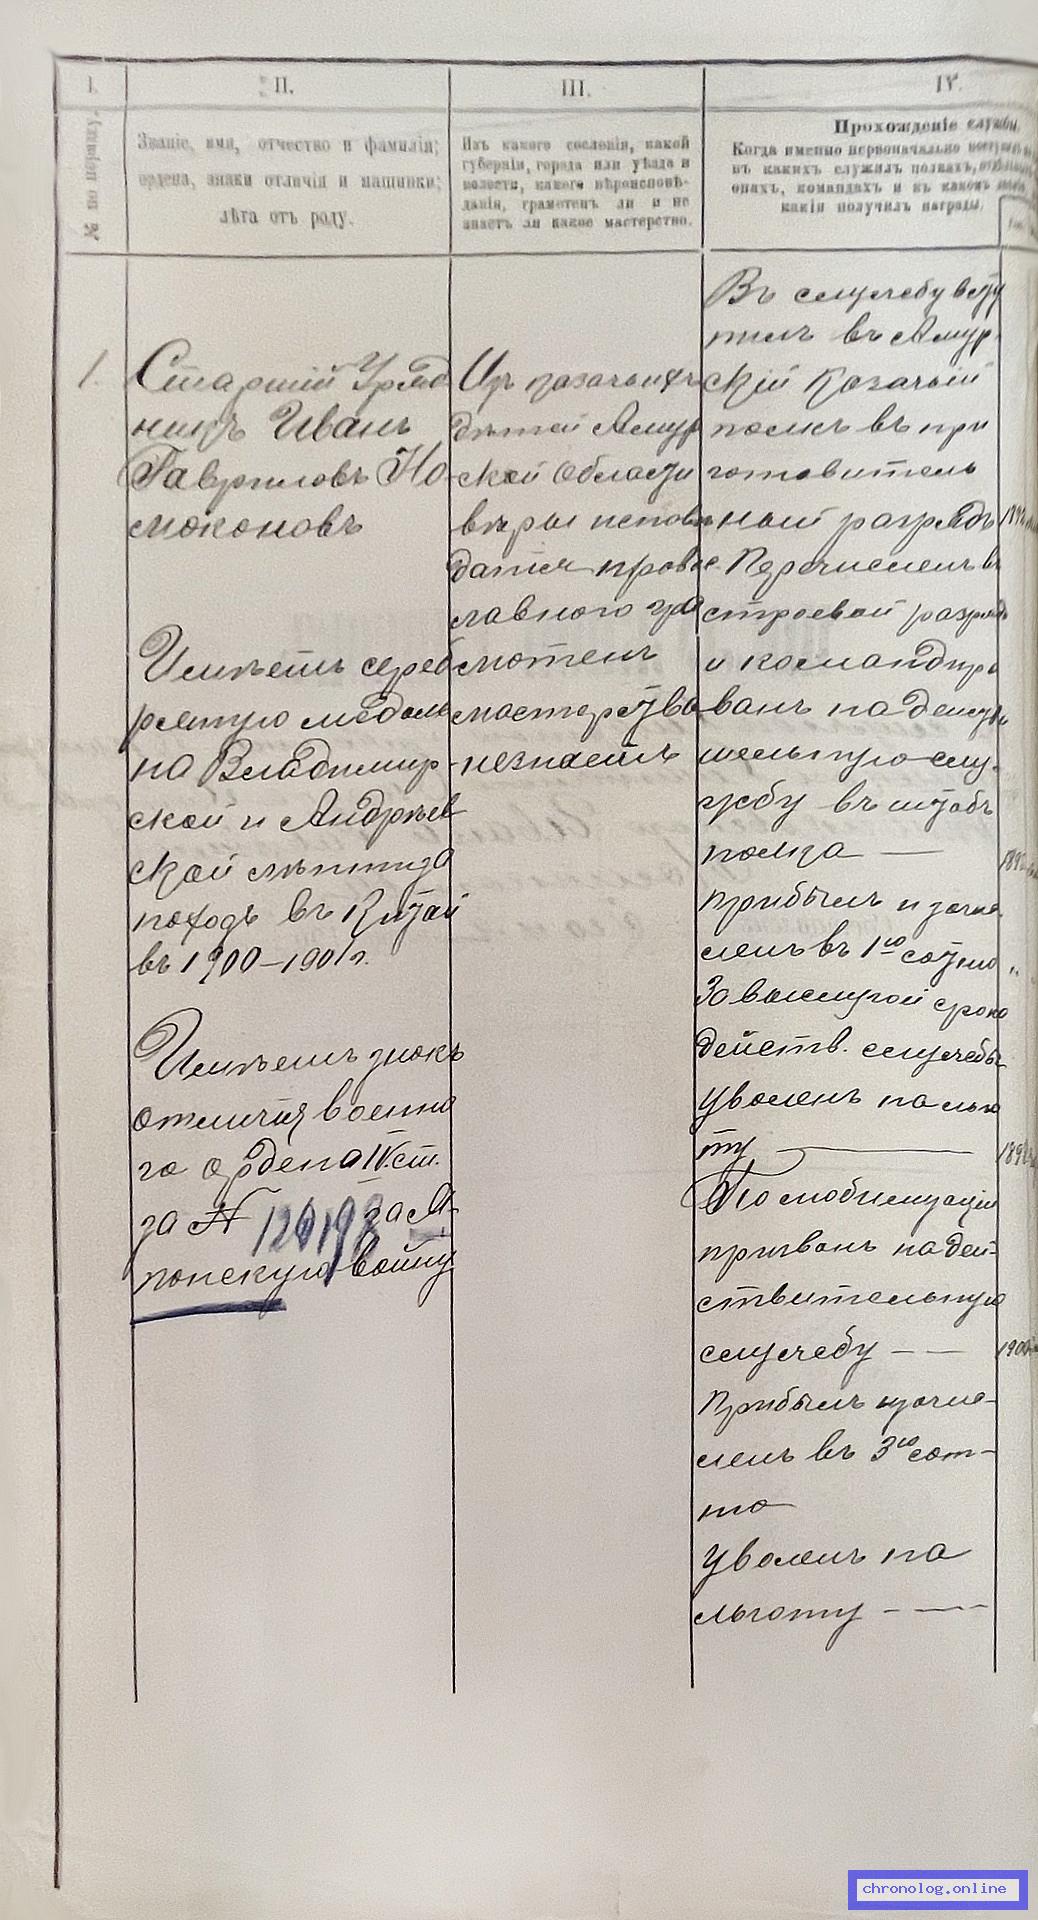 I.
II.
III.
IV.
№ по порядку.
Званіе, имя, отчество и фамилія;
ордена, знаки отличія и нашивки;
лѣта отъ роду.
Изъ какого сословія, какой
губерніи, города или уѣзда и
волости, какого вѣроисповѣ-
данія, грамотенъ ли и не
знаетъ ли какое мастерство.
Прохожденіе службы.
Когда именно первоначально
въ какихъ служилъ полкахъ,
онахъ, командахъ и въ какомъ
какія получилъ награды.
1.
Старшій Уряд
никъ Иванъ
Гавриловъ Но-
моконовъ
Имѣетъ сереб
рянную медаль
на Владимир-
ской и Андреев
ской лентѣ за
походъ въ Китай
въ 1900–1901 г.
Имѣетъ знакъ
отличія военна
го ордена IV ст.
за № 120198 за Я-
понскую войну
Изъ казачьихъ
дѣтей Амур
ской Области
вѣры исповѣ
данія правос
лавного гра
мотенъ
мастерства
незнаетъ
Въ службу всту
пилъ въ Амур-
скій казачій
полкъ въ при
готовитель
ный разрядъ
Перечисленъ въ
строевой разрядъ
и командиро
ванъ на дѣйстви
тельную слу-
жбу въ штабъ
полка —
Прибылъ и зачис
ленъ въ 1ую сотню
За выслугой срока
дѣйств. службы
уволенъ на льго
ту —
По мобилизаціи
призванъ на дѣй-
ствительную
службу — —
Прибылъ и зачис-
ленъ въ 3ую сот-
ню
Уволенъ на
льготу - — -
chronolog.online